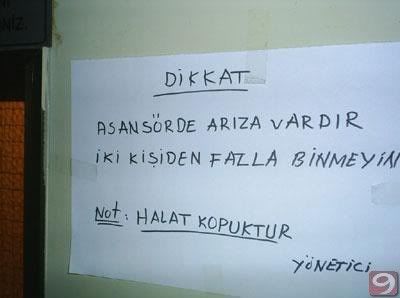 NİZ.
DİKKAT
ASANSÖRDE ARIZA VARDIR
İKİ KİŞİDEN FAZLA BİNMEYİN
Not: HALAT KOPUKTUR
YÖNETİCİ
9